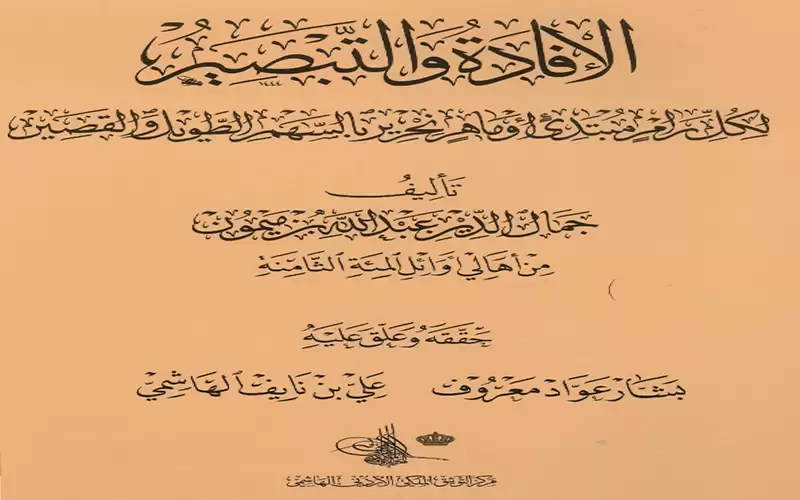 الإفادة والتبصير
١٤٤٤
لكل رام مبتدئ أو ماهر نحرير بالسهم الطويل والقصير
تأليف
جمال الدين عبد الله بن ميمون
من أهالي أوائل المئة الثامنة
حققه وعلق عليه
بشار عواد معروف علي بن نايف الهاشمي
مركز التوثيق الملكي الأردني الهاشمي